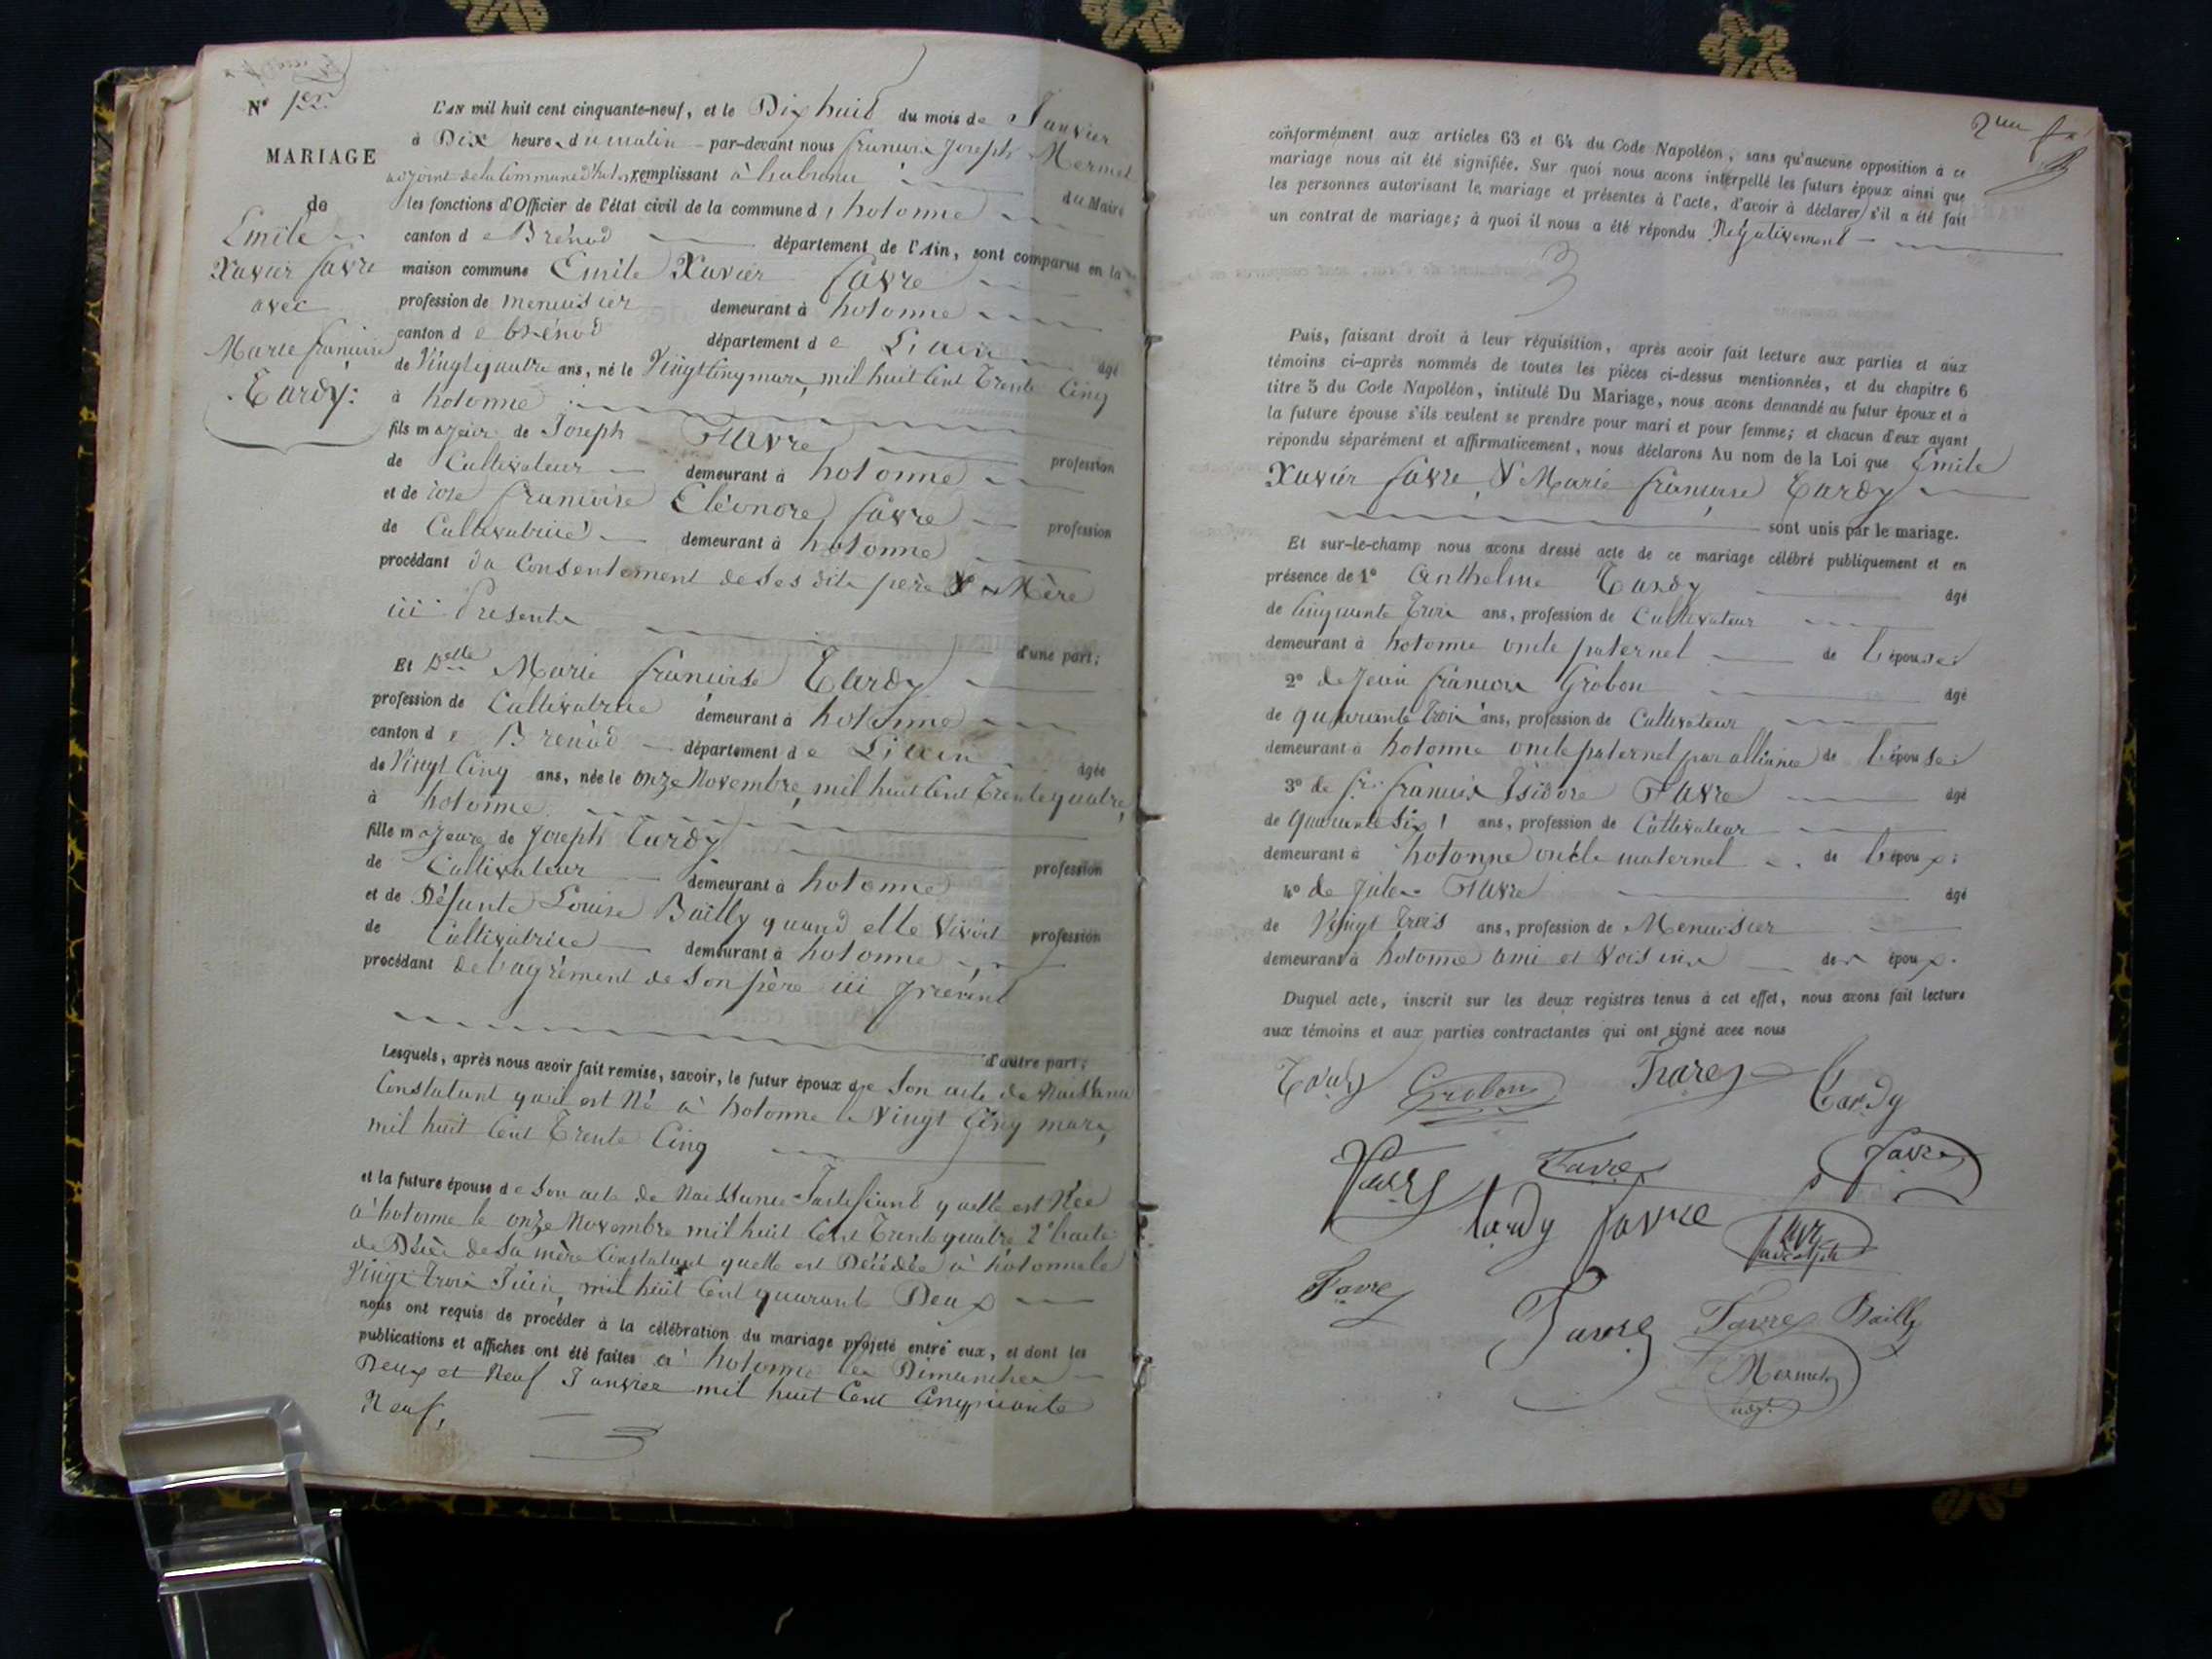 N° 1er
MARIAGE
de
Emile
Xavier favre
avec
Marie francoise
Tardy:
L'AN mil huit cent cinquante-neuf, et le Dix huit du mois de Janvier
à Dix heures du matin par-devant nous francois Joseph Mermet
adjoint de la Commune d'hotonne remplissant à l'absence du Maire
les fonctions d'Officier de l'état civil de la commune d'hotonne
canton de Brénod département de l'Ain, sont comparus en la
maison commune Emile Xavier favre
profession de menuisier demeurant à hotonne
canton de brénod département de L'ain âgé
de Vingt quatre ans, né le Vingt Cinq mars, mil huit Cent Trente Cinq
à hotonne
fils majeur de Joseph FAvre profession
de Cultivateur demeurant à hotonne
et de françoise Eléonore favre profession
de Cultivatrice demeurant à hotonne
procédant du Consentement de Ses dits père & Mère
ici Presents
d'une part;
Et Delle Marie françoise Tardy
profession de Cultivatrice demeurant à hotonne
canton de Brénod département de L'ain âgée
de Vingt Cinq ans, née le onze Novembre, mil huit Cent Trente quatre,
à hotonne
fille majeure de Joseph Tardy profession
de Cultivateur demeurant à hotonne
et de Défunte Louise Bailly quand elle Vivoit profession
de Cultivatrice demeurant à hotonne
procédant de l'agrément de Son père ici présent
d'autre part;
Lesquels, après nous avoir fait remise, savoir, le futur époux de Son acte de Naissance
Constatant qu'il est Né à hotonne le Vingt Cinq mars,
mil huit Cent Trente Cinq
et la future épouse de Son acte de Naissance Justifiant quelle est Née
à hotonne le onze Novembre mil huit Cent Trente quatre 2° l'acte
de Décès de Sa mère Constatant quelle est Décédée à hotonne le
Vingt trois Juin, mil huit Cent quarante Deux
nous ont requis de procéder à la célébration du mariage projeté entre eux, et dont les
publications et affiches ont été faites à hotonne les Dimanches
Deux et Neuf Janvier mil huit Cent Cinquante
Neuf,
conformément aux articles 63 et 64 du Code Napoléon, sans qu'aucune opposition à ce
mariage nous ait été signifiée. Sur quoi nous avons interpellé les futurs époux ainsi que
les personnes autorisant le mariage et présentes à l'acte, d'avoir à déclarer s'il a été fait
un contrat de mariage; à quoi il nous a été répondu Négativement
Puis, faisant droit à leur réquisition, après avoir fait lecture aux parties et aux
témoins ci-après nommés de toutes les pièces ci-dessus mentionnées, et du chapitre 6
titre 5 du Code Napoléon, intitulé Du Mariage, nous avons demandé au futur époux et à
la future épouse s'ils veulent se prendre pour mari et pour femme; et chacun d'eux ayant
répondu séparément et affirmativement, nous déclarons Au nom de la Loi que Emile
Xavier favre, & Marie françoise Tardy
sont unis par le mariage.
Et sur-le-champ nous avons dressé acte de ce mariage célébré publiquement et en
présence de 1° Anthelme Tardy âgé
de Cinquante Trois ans, profession de Cultivateur
demeurant à hotonne oncle paternel de L'épouse:
2° de Jean françois Grobon âgé
de quarante trois ans, profession de Cultivateur
demeurant à hotonne oncle paternel par alliance de L'épouse:
3° de francois Isidore FAvre âgé
de Quarante Six ans, profession de Cultivateur
demeurant à hotonne oncle maternel de L'époux:
4° de Jules FAvre âgé
de Vingt trois ans, profession de Menuisier
demeurant à hotonne ami et Voisin des époux.
Duquel acte, inscrit sur les deux registres tenus à cet effet, nous avons fait lecture
aux témoins et aux parties contractantes qui ont signé avec nous
Tardy Grobon Favre Tardy
Favre Favre Favre
tardy favre
Favre
Favre Favre Bailly
Mermet
adjt.